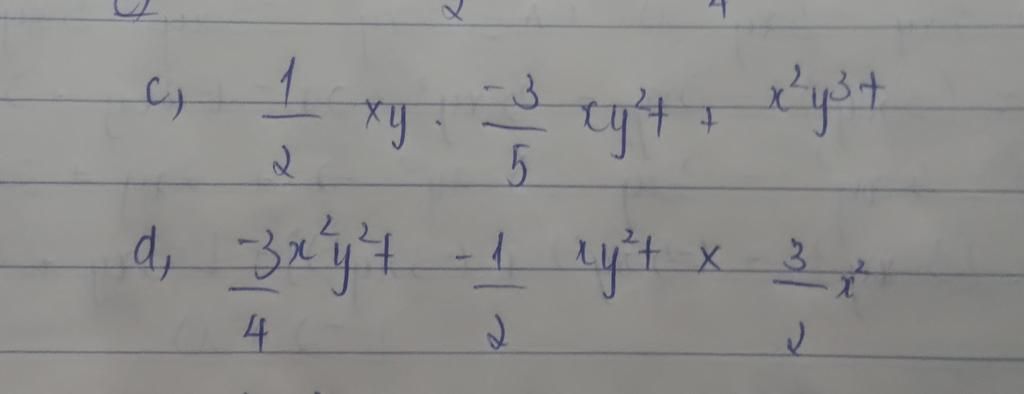 c, 1/2 xy . -3/5 xy²t + x²y³t
d, -3/4 x²y²t - 1/2 xy²t × 3/2 x²